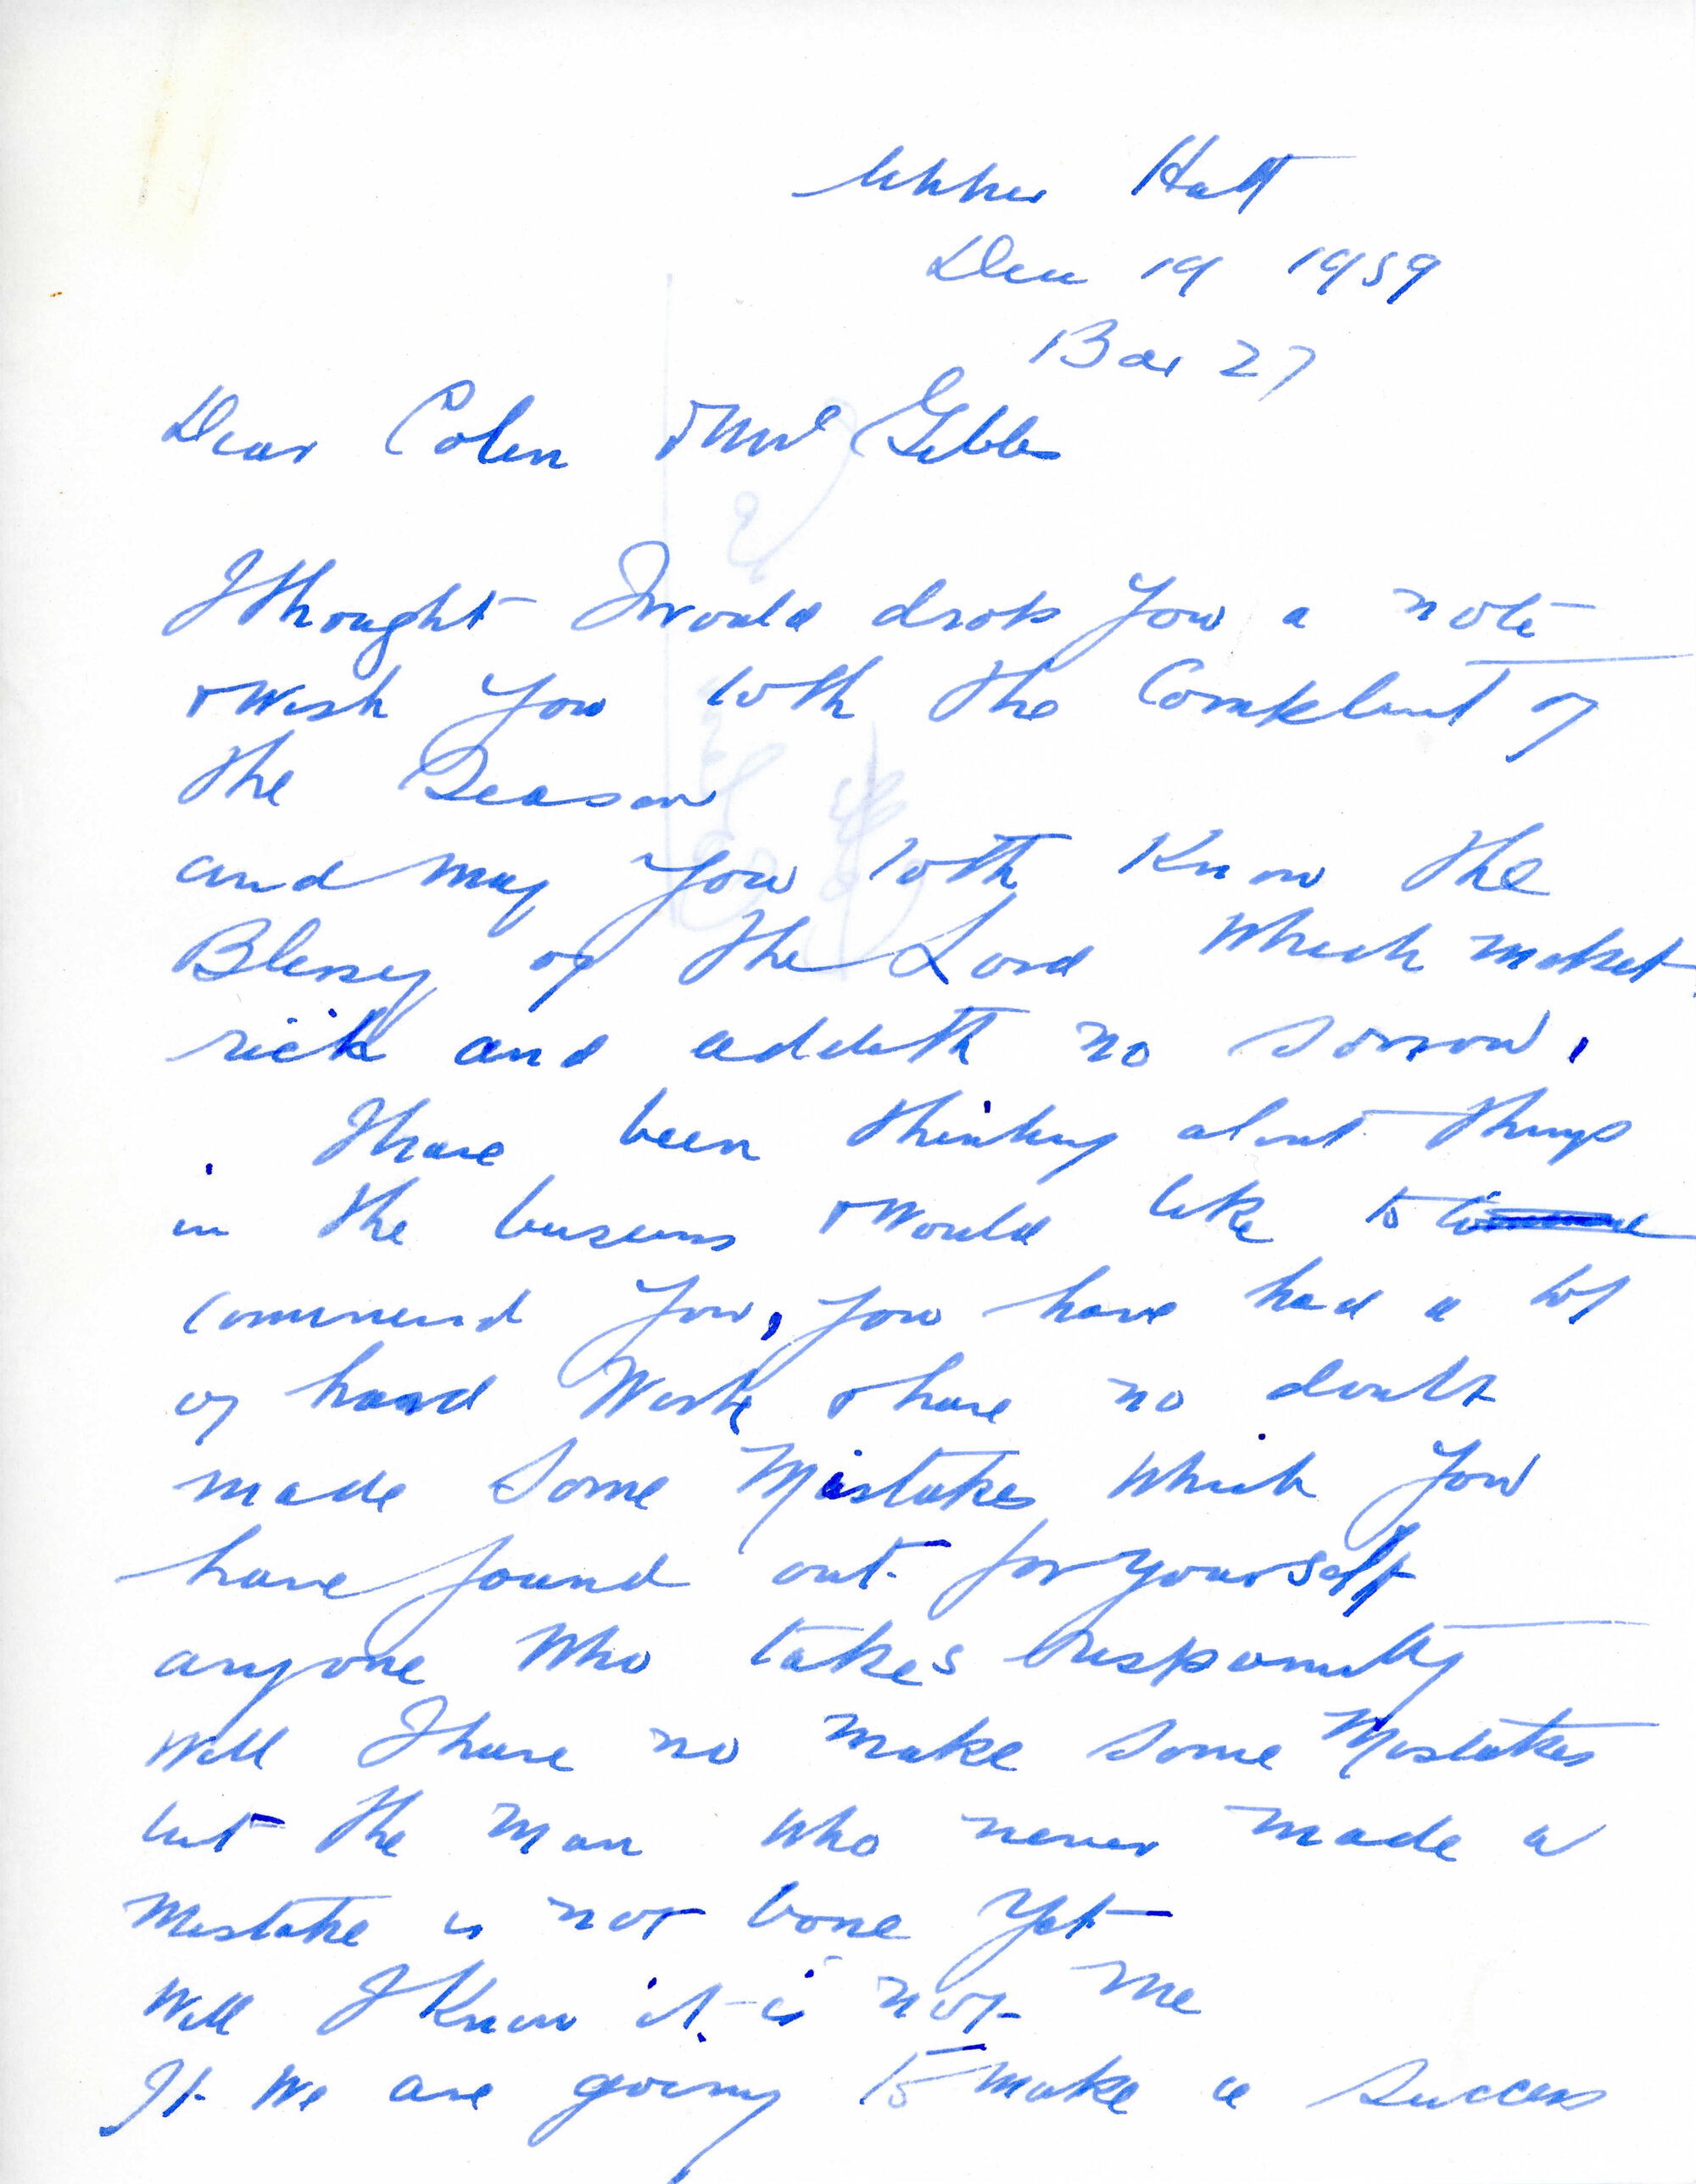 Upper Hatt
Dec 19 1959
Box 27
Dear Colen & Mrs Gibb
I thought I would drop you a note
& Wish you both the Complement of
the Season
and may you both Know the
Blessing of the Lord which maket
rich and addeth no sorrow,
I have been thinking about things
in the business & would like to
commend you, you have had a lot
of hard Work & have no doubt
made some Mistakes which you
have found out for yourself
anyone Who takes responsibility
Will I have no make some Mistakes
but the man who never made a
Mistake is not bone yet
Will I Know it is not me
If We are going to make a success